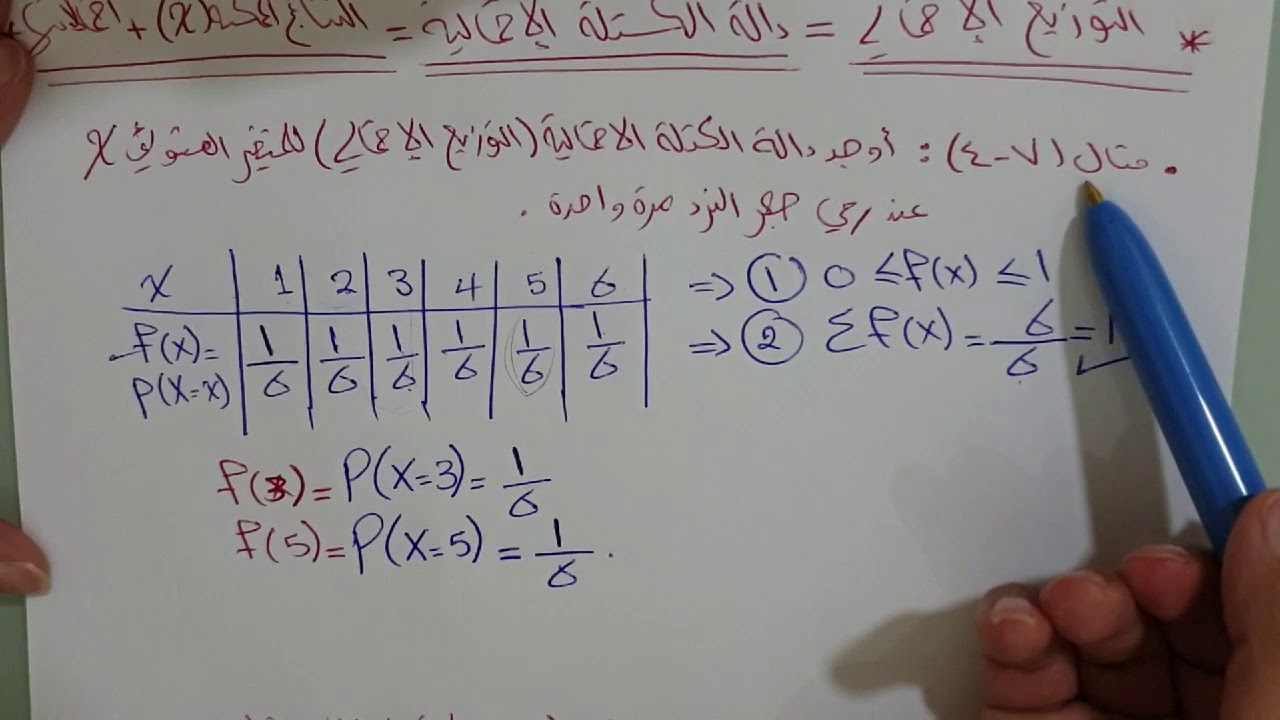 * التوزيع الإحتمالي = دالة الكتلة الإحتمالية = النتائج الممكنة (X) +
• مثال (٧-٤) : أوجد دالة الكتلة الاحتمالية (التوزيع الإحتمالي) للمتغير العشوائي X
عند رمي حجر النرد مرة واحدة .
x | 1 | 2 | 3 | 4 | 5 | 6 | ⇒ ① 0 ≤ f(x) ≤ 1
f(x)= | 1/6 | 1/6 | 1/6 | 1/6 | 1/6 | 1/6 | ⇒ ② Σf(x) = 6/6 = 1 ✓
P(X=x)
f(3) = P(X=3) = 1/6
f(5) = P(X=5) = 1/6 .